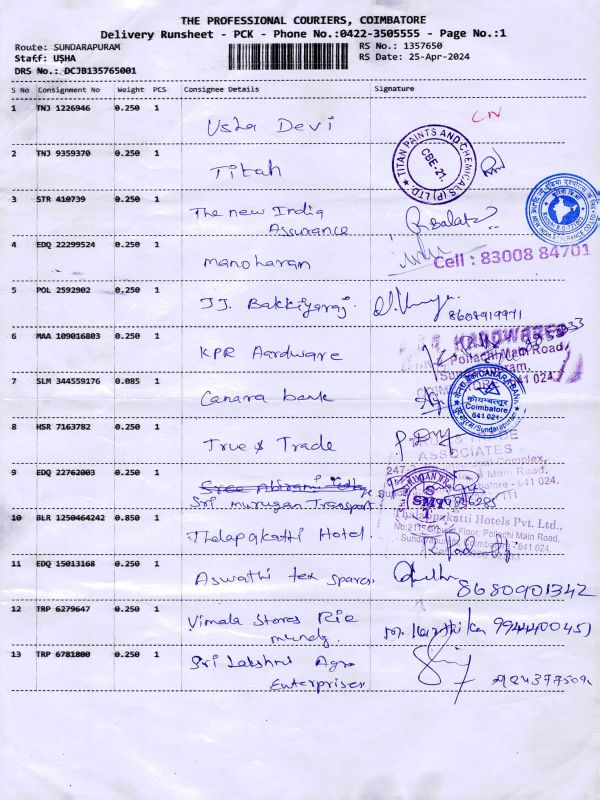 THE PROFESSIONAL COURIERS, COIMBATORE
Delivery Runsheet - PCK - Phone No.:0422-3505555 - Page No.:1
Route: SUNDARAPURAM RS No.: 1357650
Staff: USHA RS Date: 25-Apr-2024
DRS No.: DCJB135765001
S No Consignment No Weight PCS Consignee Details Signature
1 TNJ 1226946 0.250 1 Usha Devi
2 TNJ 9359370 0.250 1 Titan
TITAN PAINTS AND CHEMICALS (P) LTD. CBE-21.
3 STR 410739 0.250 1 The new India
Assurance
4 EDQ 22299524 0.250 1 manoharan
Cell : 83008 84701
5 POL 2592902 0.250 1 JJ. Bakkiyaraj.
8608919971
6 MAA 109016803 0.250 1 KPR Aardware
HARDWARE
Pollachi Main Road,
7 SLM 344559176 0.085 1 Canara bank
CANARA BANK
कोयम्बत्तूर
Coimbatore
641 021
Sundarapuram
8 HSR 7163782 0.250 1 True & Trade
ASSOCIATES
9 EDQ 22762003 0.250 1 Sree Abirami
Sri murugan Transport
SMT
10 BLR 1250464242 0.850 1 Thalapakatti Hotel.
Hotels Pvt. Ltd.,
Floor, Pollachi Main Road,
11 EDQ 15013168 0.250 1 Aswathi tex spares
8680901342
12 TRP 6279647 0.250 1 Vimala Stores Ric
mundy.
m. Karthika 9944400451
13 TRP 6781800 0.250 1 Sri Lakshmi Agro
Enterprises